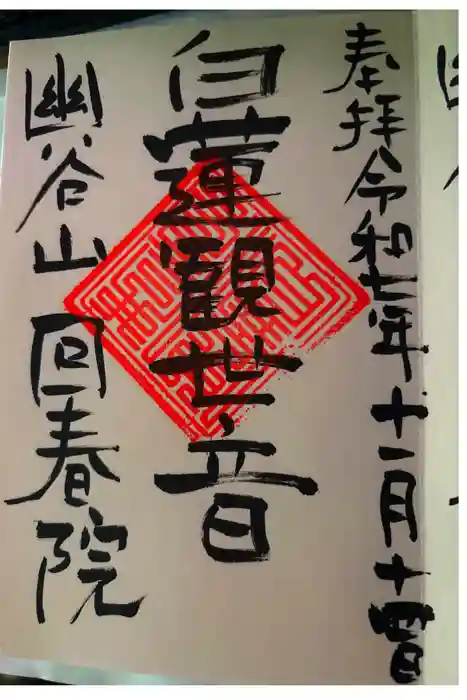 奉拝令和七年十一月十四日
白蓮観世音
幽谷山回春院